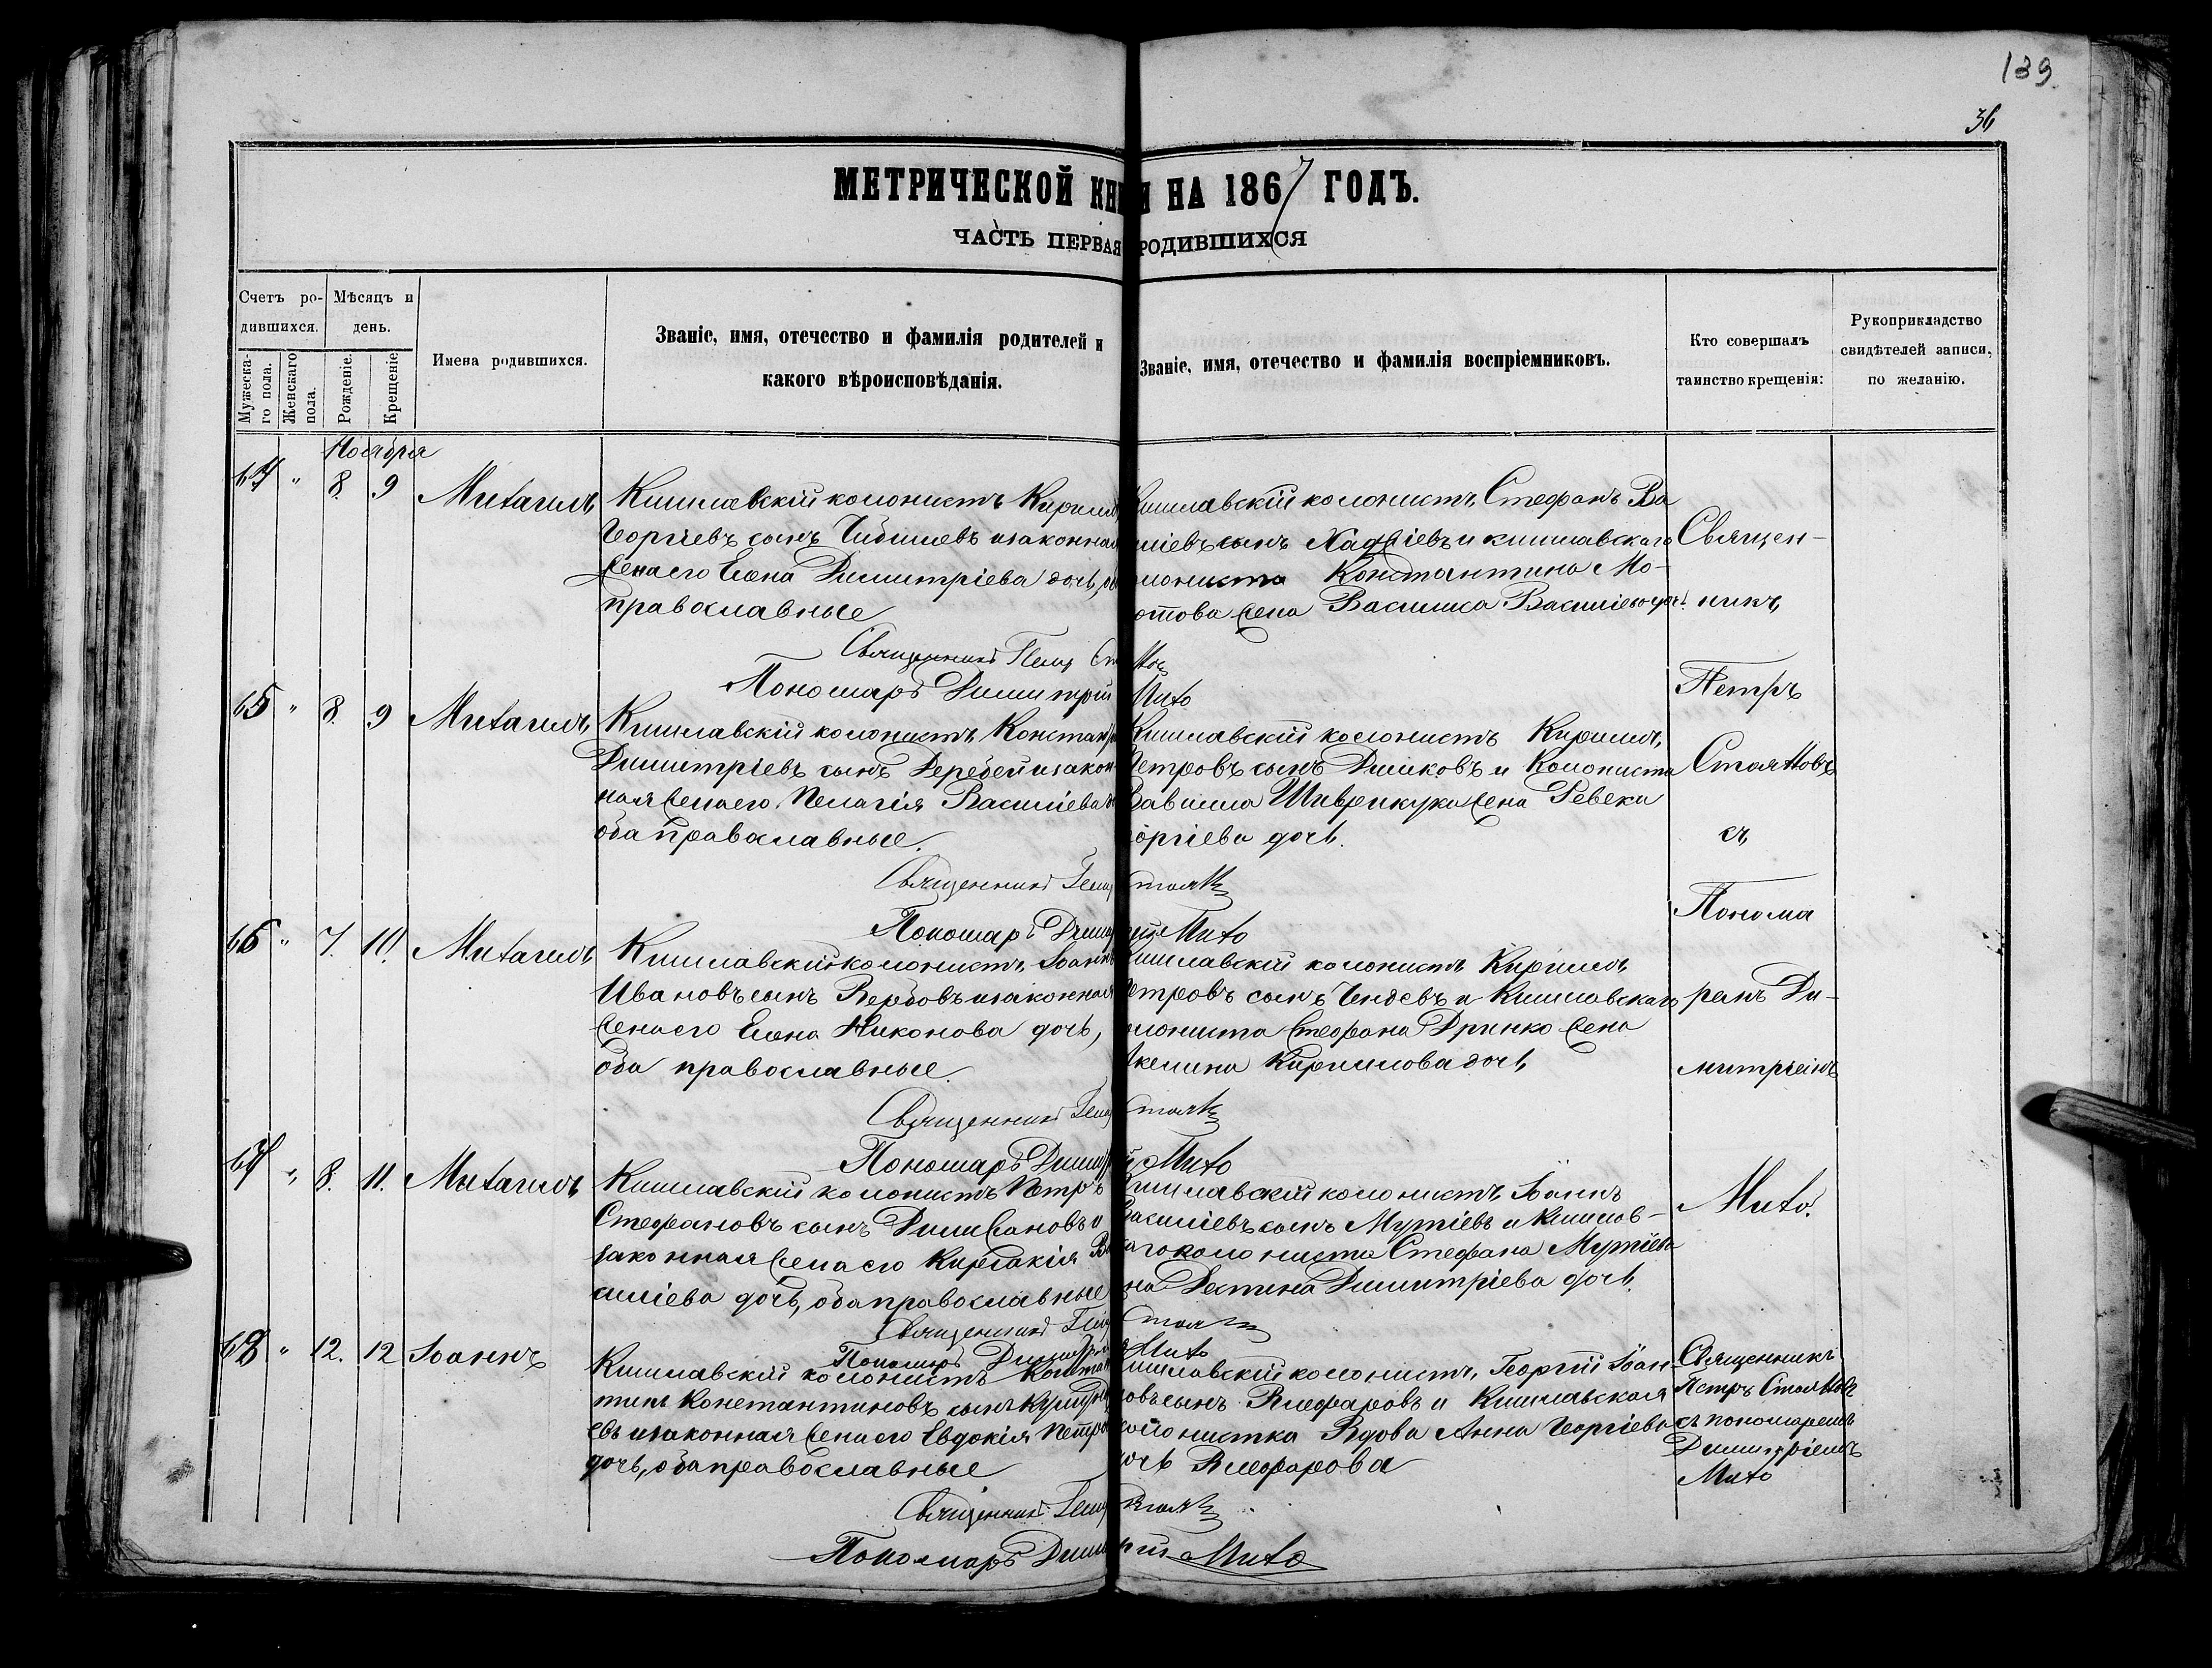 139
36
МЕТРИЧЕСКОЙ КНИГИ НА 1867 ГОДЪ.
ЧАСТЬ ПЕРВАЯ РОДИВШИХСЯ
Счетъ ро-
дившихся.
Мѣсяцъ и
день.
Мужеска-
го пола.
Женскаго
пола.
Рожденіе.
Крещеніе.
Имена родившихся.
Званіе, имя, отечество и фамилія родителей и
какого вѣроисповѣданія.
Званіе, имя, отечество и фамилія воспріемниковъ.
Кто совершалъ
таинство крещенія:
Рукоприкладство
свидѣтелей записи,
по желанію.
Ноября
64 " 8. 9 Михаилъ
Кишлавскій колонистъ Кирилл
Георгіевъ сынъ изаконная
жена его Елена Димитріева дочь,
православные
Кишлавскій колонистъ Стефанъ Ва
иліевъ сынъ и кишлавскаго
лониста Константина Мо-
отова жена Василиса Василіева доч.
Священникъ
Пономаръ Димитрій Мито
65 " 8. 9 Михаилъ
Кишлавскій колонистъ Констан
Димитріевъ сынъ Деребей изакон-
ная жена его Пелагія Василіева
оба православные.
Кишлавскій колонистъ Кириллъ
Петровъ сынъ Димковъ и Колониста
Вавилла жена Ревека
оргіева дочь.
Священникъ
Пономаръ Мито
66 " 7. 10. Михаилъ
Кишлавскій колонистъ Іоаннъ
Ивановъ сынъ Вербовъ изаконная
жена его Елена Никонова дочь,
оба православные.
Кишлавскій колонистъ Кириллъ
Петровъ сынъ и Кишлавскаго
лониста Стефана Дринко жена
Акелина Кириллова дочь
Священникъ
Пономаръ Мито
67 " 8. 11. Михаилъ
Кишлавскій колонистъ Петръ
Стефановъ сынъ и
законная жена его Киріакія Ва
силіева дочь, оба православные
Кишлавскій колонистъ Іоаннъ
Василіевъ сынъ и Кишлав-
аго колониста Стефана
на Димитріева дочь.
Священникъ
Пономаръ Мито
68 " 12. 12 Іоаннъ
Кишлавскій колонистъ Констан
тинъ Константиновъ сынъ
евъ изаконная жена его Евдокія Петро
дочь, оба православные
Кишлавскій колонистъ Георгій Іоан-
новъ сынъ Влефаровъ и Кишлавская
колонистка Вдова Анна Георгіева
дочь Влефарова
Священникъ
Пономаръ Мито
Священ-
никъ
Петръ
Стояновъ
съ
Понома
ремъ Ди-
митріемъ
Мито.
Священникъ
Петръ Стояновъ
съ пономаремъ
Димитріемъ
Мито